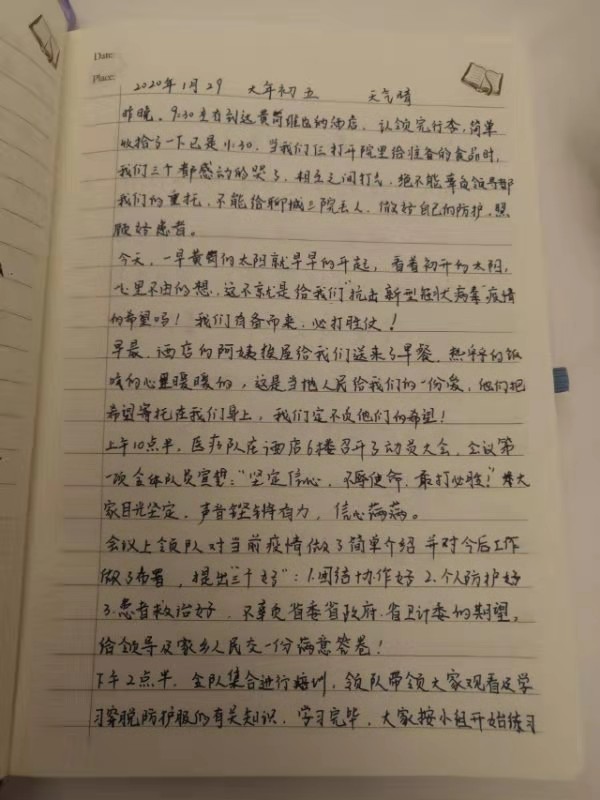 Date:
Place:
2020年1月29 大年初五 天气晴
昨晚。9:30左右到达黄冈维也纳酒店。认领完行李,简单
收拾了一下已是11:30。当我们仨打开院里给准备的食品时,
我们三个都感动的哭了,相互之间打气,绝不能辜负领导都
我们的重托,不能给聊城三院丢人。做好自己的防护,照
顾好患者。
今天,一早黄冈的太阳就早早的升起,看着初升的太阳,
心里不由的想,这不就是给我们"抗击新型冠状病毒"疫情
的希望吗!我们有备而来,必打胜仗!
早晨,酒店的阿姨挨屋给我们送来了早餐,热乎乎的饭
吃的心里暖暖的,这是当地人民给我们的一份爱,他们把
希望寄托在我们身上,我们定不负他们的希望!
上午10点半,医疗队在酒店6楼召开了动员大会,会议第
一项全体队员宣誓:"坚定信心,不辱使命,敢打必胜!"大
家目光坚定,声音铿锵有力,信心满满。
会议上领队对当前疫情做了简单介绍并对今后工作
做了布署,提出"三个好":1.团结协作好 2.个人防护好
3.患者救治好,不辜负省委省政府、省卫计委的期望,
给领导及家乡人民交一份满意答卷!
下午2点半,全队集合进行培训,领队带领大家观看及学
习穿脱防护服的有关知识,学习完毕,大家按小组开始练习